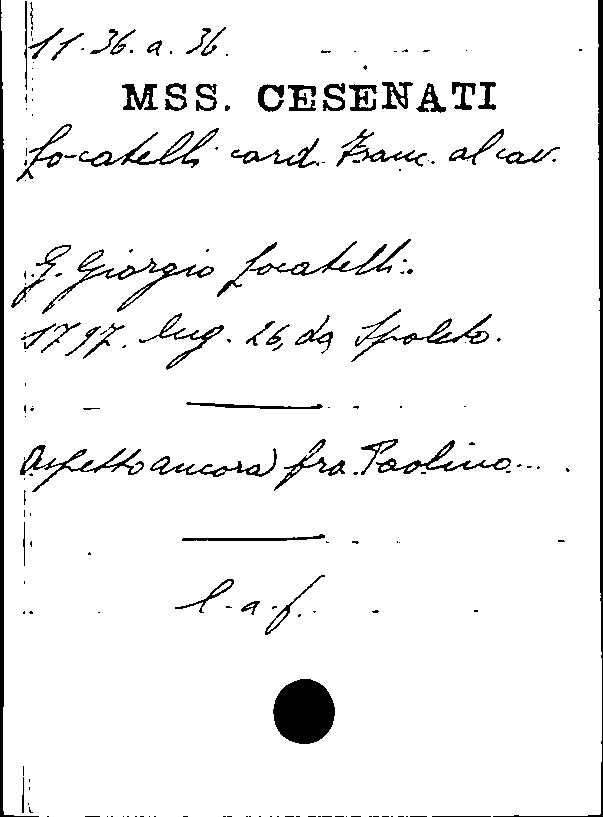 11. 36. a. 36.
MSS. CESENATI
Locatelli card. Franc. al cav.
G. Giorgio Locatelli.
1797. lug. 26, da Spoleto.
Aspetto ancora fra Paolino...
l. a. f.